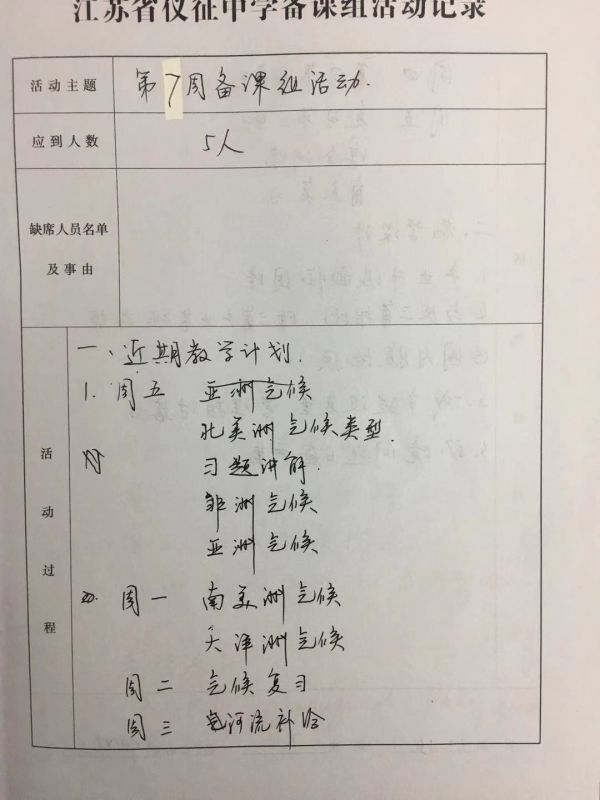 江苏省仪征中学备课组活动记录
活动主题 第7周备课组活动.
应到人数 5人
缺席人员名单
及事由
活动过程
一、近期教学计划.
1. 周五 亚洲气候
北美洲气候类型.
习题讲解.
邹洲气候
亚洲气候
2. 周一 南美洲气候
大洋洲气候
周二 气候复习
周三 河流补给